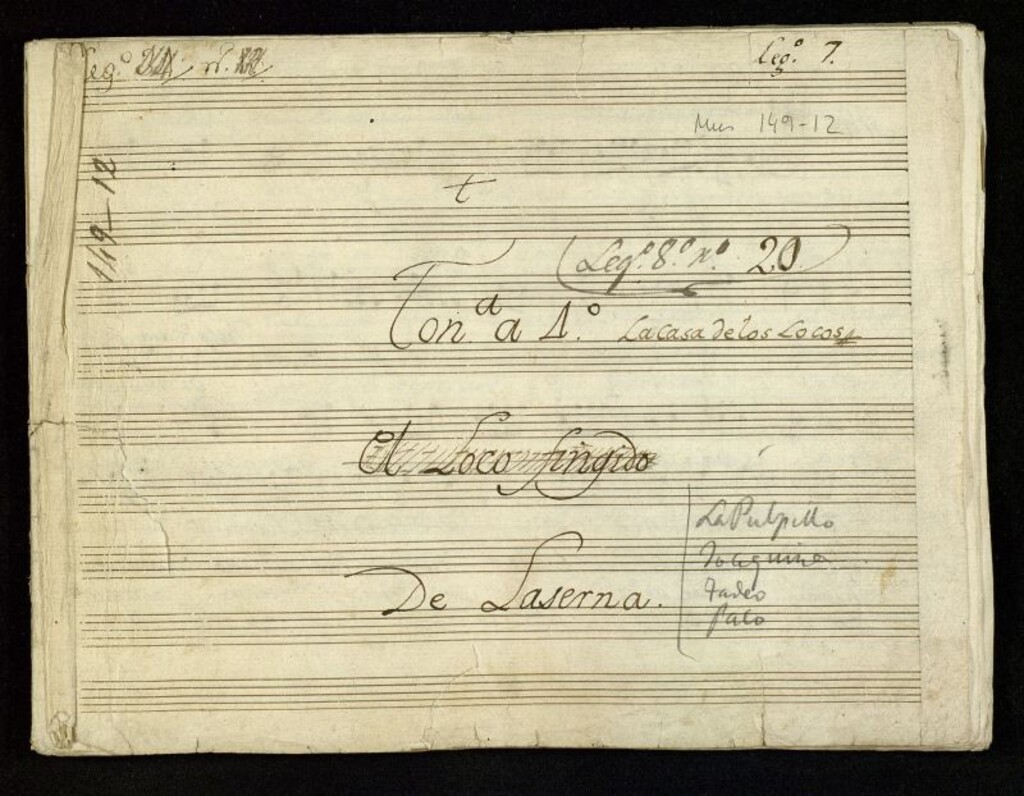 Leg.º n.
Leg.º 7.
Mus 149-12
149-12
t
Leg.º 8.º n.º 20.
Ton.ª a 4.º La casa de los Locos
El Loco fingido
La Pulpillo
Joaquina
Tadeo
De Laserna.